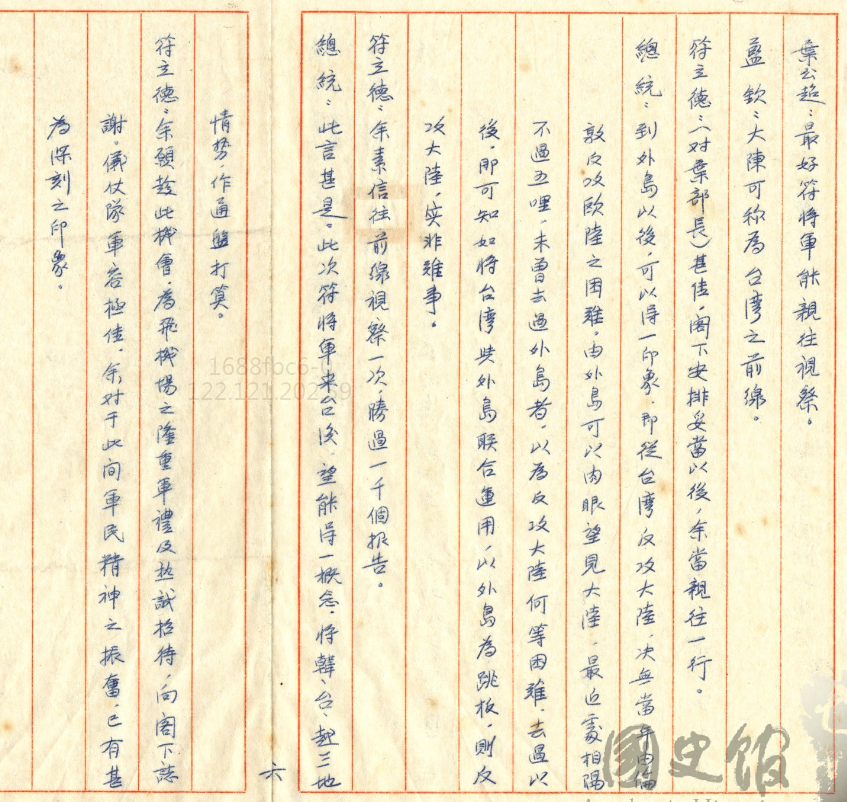 葉公超：最好符將軍能親往視察。
藍 欽：大陳可稱為台灣之前線。
符立德：（对葉部長）甚佳，閣下安排妥當以後，余當親往一行。
總 統：到外島以後，可以得一印象，即從台灣反攻大陸，决無當年由倫
敦反攻欧陸之困難。由外島可以肉眼望見大陸，最近處相隔
不過五哩，未曾去過外島者，以為反攻大陸何等困難，去過以
後，即可知如將台灣與外島联合運用，以外島為跳板，則反
攻大陸，实非难事。
符立德：余素信往前線視察一次，勝過一千個报告。
總 統：此言甚是。此次符將軍来台後，望能得一概念，將韓、台、越三地
六
情势，作通盤打算。
符立德：余願趁此機會，為飛機場之隆重軍禮及热誠招待，向閣下誌
謝。儀仗隊軍容極佳，余对于此间軍民精神之振奮，已有甚
為深刻之印象。
1688fbc6-
122.121.202.
國史館